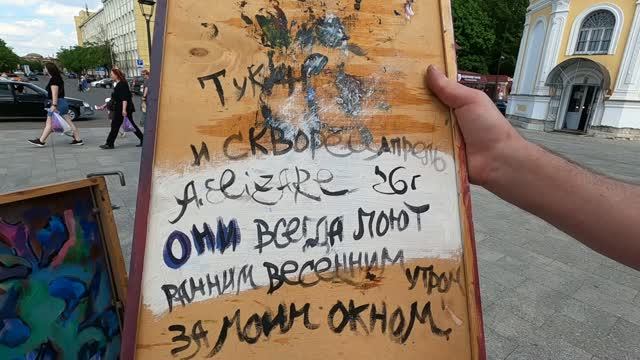 Тукан
и скворец апрель
A. Elizare 26г
Они всегда поют
ранним весенним утром
за моим окном.